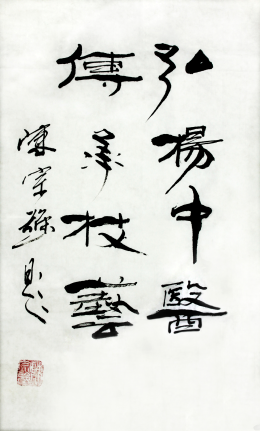 弘揚中醫
傳承技藝
陳宗 題